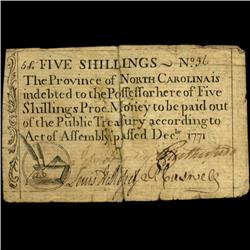 5s. FIVE SHILLINGS ~ No 96
The Province of NORTH CAROLINA is
indebted to the Possessor here of Five
Shillings Proc. Money to be paid out
of the Public Treasury according to
Act of Assembly passed Decr. 1771
Rutherfurd
Lewis Caswell